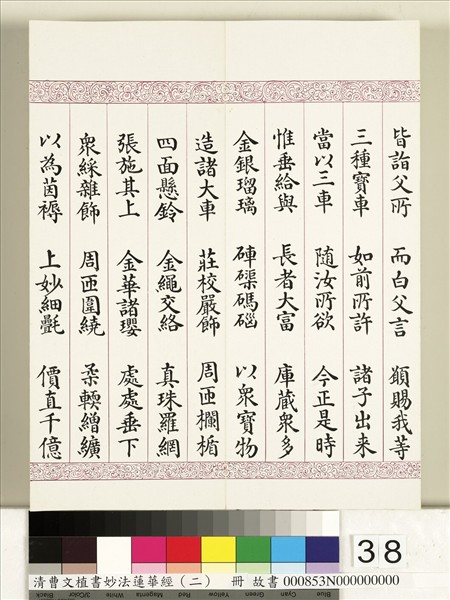 皆詣父所 而白父言 願賜我等
三種寶車 如前所許 諸子出來
當以三車 隨汝所欲 今正是時
惟垂給與 長者大富 庫藏衆多
金銀瑠璃 硨磲碼碯 以衆寶物
造諸大車 莊校嚴飾 周匝欄楯
四面懸鈴 金繩交絡 真珠羅網
張施其上 金華諸瓔 處處垂下
衆綵雜飾 周匝圍繞 柔軟繒纊
以為茵褥 上妙細㲲 價直千億
38
清曹文植書妙法蓮華經（二） 冊 故書 000853N000000000
Black 3/Color White Magenta Red Yellow Green Cyan Blue